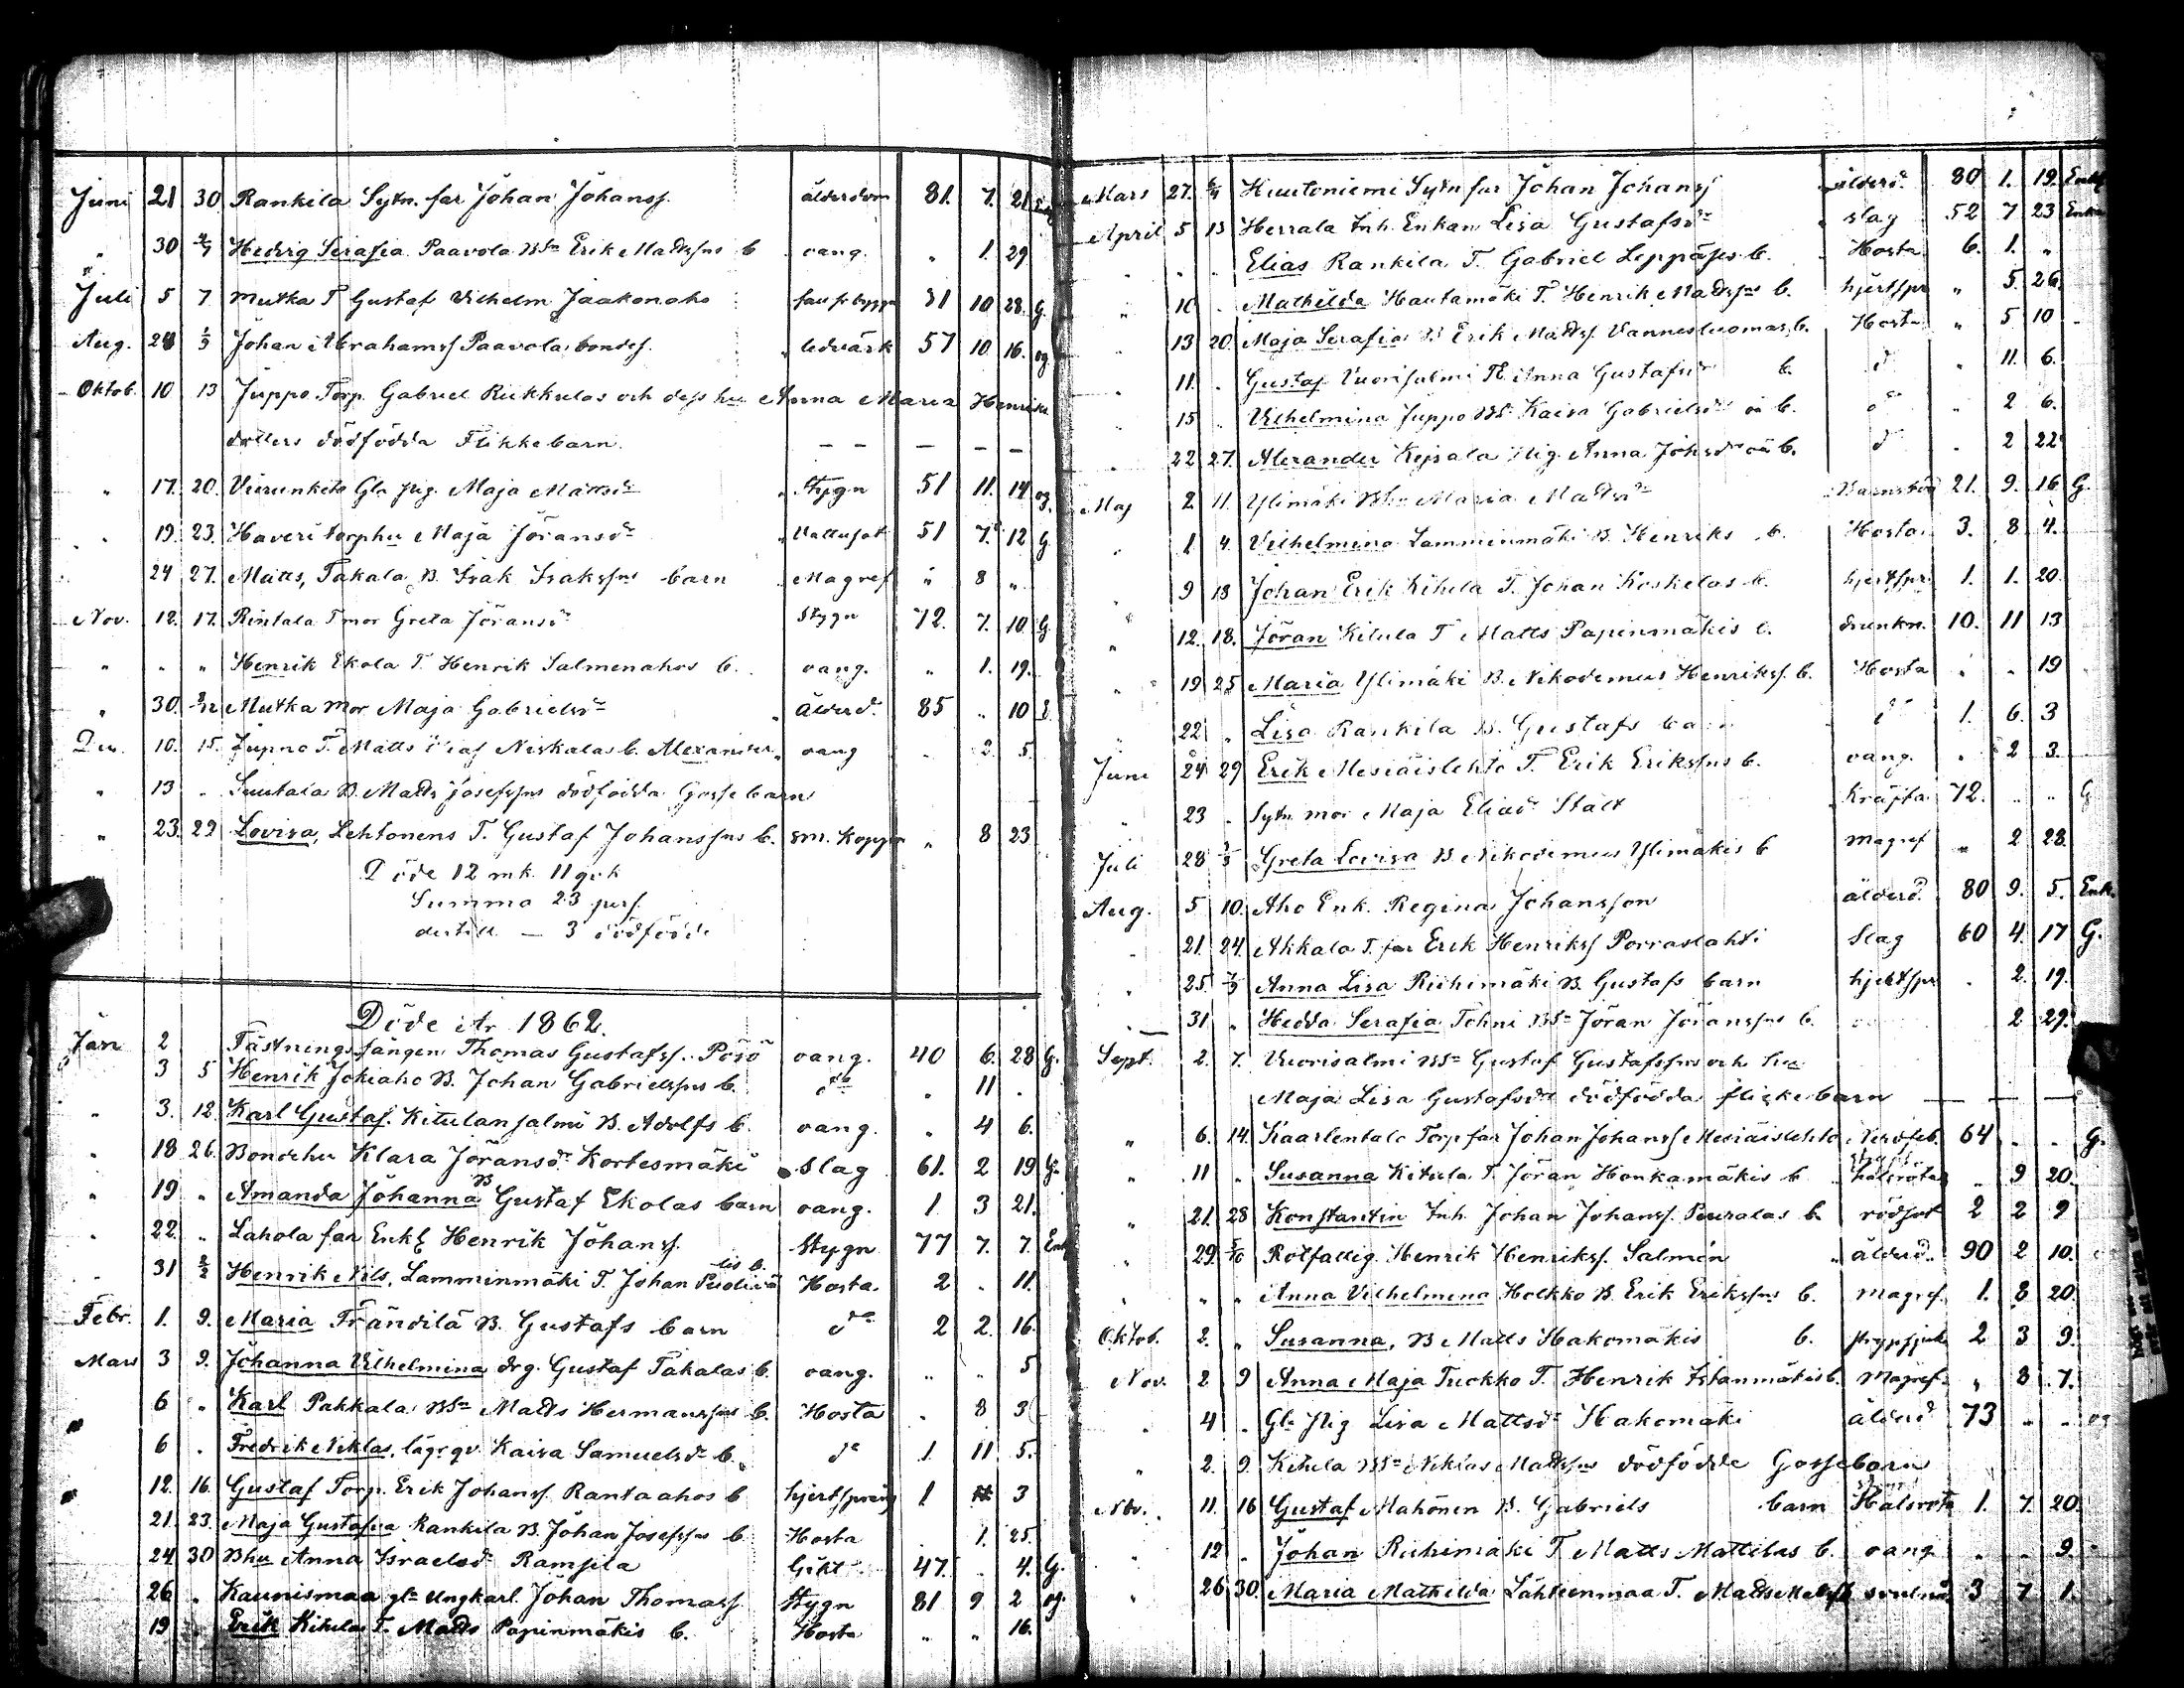 Juni 21 30 Rankila Sytn. far Johan Johanss. ålderdom 81. 7. 21
" 30 2/7 Hedvig Serafia Paavola Bsn Erik Mattssns b oang. " 1. 29
Juli 5 7 Mutka T Gustaf Vilhelm Jaakonaho 31 10 28. G.
Aug. 28 1/9 Johan Abrahamss Paavola bondes. ledvärk 57 10. 16. og
Oktob. 10 13 Juppo Torp. Gabriel Rukkulas och dess hu Anna Maria Henriks
dotters dödfödda Flikkebarn. — — — — —
" 17. 20. Gla pig. Maja Mattsdr Stygn 51 11. 14 og.
" 19. 23. Haveri torphu Maja Jöransdr Vattusot 51 7. 12 G
24 27. Matts, Takala B. Isak Isakssns barn Magref " 8 "
Nov. 12. 17. Rintala Tmor Greta Jöransdr Stygn 72. 7. 10. G.
" " " Henrik Ekola T. Henrik Salmenahos b. oang. " 1. 19.
" 30. 3/12 Mutka mor Maja Gabrielsdr Ålderd. 85 " 10 E.
Dec. 10. 15. Juppo T. Matts Niskalas b. Alexander oang 2. 5.
" 13 " Luutala B. Matts Josefssns dödfödda Gossebarn
" 23. 29 Lovisa, Lehtonens T. Gustaf Johanssns b. sm. koppor " 8 23
Döde 12 mk. 11 qvk
Summa 23 pers.
dertill — 3 dödfödde
Döde År 1862.
Jan 2 Fästningsfången Thomas Gustafss. Pösö oang. 40 6. 28 G.
" 3 5 Henrik Jokiaho B. Johan Gabrielssns b. do " 11 "
" 3. 12. Karl Gustaf. Kitulansalmi B. Adolfs b. oang. " 4 6.
" 18 26. Bondehu Klara Jöransdr Kortesmäki Slag 61. 2 19 G.
" 19 " Amanda Johanna B Gustaf Ekolas barn oang. 1 3 21.
" 22. " Lahola far Enkl Henrik Johanss. Stygn 77 7. 7. Enkl
" 31 2/2 Henrik Nils, Lamminmäki T. Johan b. Hosta. 2 " 11.
Febr. 1. 9. Maria Frändilä B. Gustafs barn do 2 2. 16.
Mars 3 9. Johanna Vilhelmina drg. Gustaf Takalas b. oang. " " 5
6 " Karl Pakkala Bsn Matts Hermanssns b. Hosta " 8 3
6 " Fredrik Niklas, läg. qv. Kaisa Samuelsdr b. do 1. 11 5.
12. 16. Gustaf Torp. Erik Johanss. Rantaahos b hjertspräng 1 3
21. 23. Maja Gustafva Rankila B. Johan Josefssns b Hosta " 1. 25.
24 30 Bhu Anna Israelsdr Ramsila Gikt 47. " 4. G.
26 " Kaunismaa gla Ungkarl Johan Thomass. Stygn 81 9 2 og.
19 " Erik Kitulas T. Matts Papinmäkis b. Hosta " " 16.
Mars 27. 6/4 Huutoniemi Sytn far Johan Johanss ålderd. 80 1. 19. Enkl
April 5 13 Herrala Inh. Enkan Lisa Gustafsdr slag 52 7 23 Enka
" " " Elias Rankila T. Gabriel b. Hosta 6. 1. "
" 10 " Mathilda Hautamäki T. Henrik Mattssns b. hjertspr " 5. 26.
" 13 20. Maja Serafia B Erik Mattss. Vannesluomas b. Hosta " 5 10
11. " Gustaf Vuorisalmi Anna Gustafsdr b. do " 11. 6.
15 " Vilhelmina Juppo Bsr Kaisa Gabrielsdr oä b. do " 2 6.
22 27. Alexander pig. Anna Johsdr oä b. do " 2 22
Maj 2 11. Ylimäki Bhu Maria Mattsdr Barnsbörd 21. 9. 16 G.
" 1. 4. Vilhelmina Lamminmäki B. Henriks b. Hosta 3. 8 4.
" 9 18 Johan Erik Kihela T. Johan Koskelas b. hjertspr. 1. 1. 20.
" 12. 18. Jöran Kitula T Matts Papinmäkis b. drunkn. 10. 11 13
" 19 25 Maria Ylimäki B. Nikodemus Henrikss. b. Hosta " " 19
" 22 " Lisa Rankila B. Gustafs barn do 1. 6. 3
Juni 24 29 Erik Mesiäislehto T. Erik Erikssns b. oang. " 2 3.
" 23 " Sytn. mor Maja Eliasdr Stält Kräfta 72. " " G
Juli 28 3/8 Greta Lovisa B Nikodemus Ylimäkis b magref " 2 28.
Aug. 5 10. Aho Enk. Regina Johansson ålderd. 80 9. 5. Enk.
21. 24. Akkala T. far Erik Henrikss Porraslahti Slag 60 4. 17 G.
" 25. 1/9 Anna Lisa Riihimäki B. Gustafs barn hjertspr " 2. 19.
" 31 " Hedda Serafia Tohni Bsn Jöran Jöranssns b. 2 29.
Sept. 2. 7. Vuorisalmi Bsn Gustaf Gustafssns och hu
Maja Lisa Gustafsdr dödfödda flickebarn — — —
" 6. 14. Kaarlentalo Torpfar Johan Johanss Mesiäislehto Nervfeb. 64 " " G.
" 11 " Susanna Kitula T. Jöran Honkamäkis b halsröta " 9 20.
" 21. 28 Konstantin Inh. Johan Johanss. Peuralas b. rödsot 2 2 9
" 29. 5/10 Rotfattig Henrik Henrikss. Salmén ålderd. 90 2 10.
" " " Anna Vilhelmina Holkko B. Erik Erikssns b. magref. 1. 8 20.
Oktob. 2. " Susanna, B Matts Hakomäkis b. 2 3 9.
Nov. 2 9 Anna Maja Tuokko T. Henrik b. Magref. " 8 7.
" 4 " Gla pig Lisa Mattsdr Hakomäki ålderd 73 " " og
" 2. 9. Kitula Bsn Niklas Mattssns dödfödde Gossebarn
Nov. 11. 16 Gustaf Mahönen B. Gabriels barn Halsröta 1. 7. 20.
" 12 " Johan Riihimäki T. Matts Mattilas b. oang " " 9.
" 26 30. Maria Mathilda Lähteenmaa T. Matts 3 7 1.